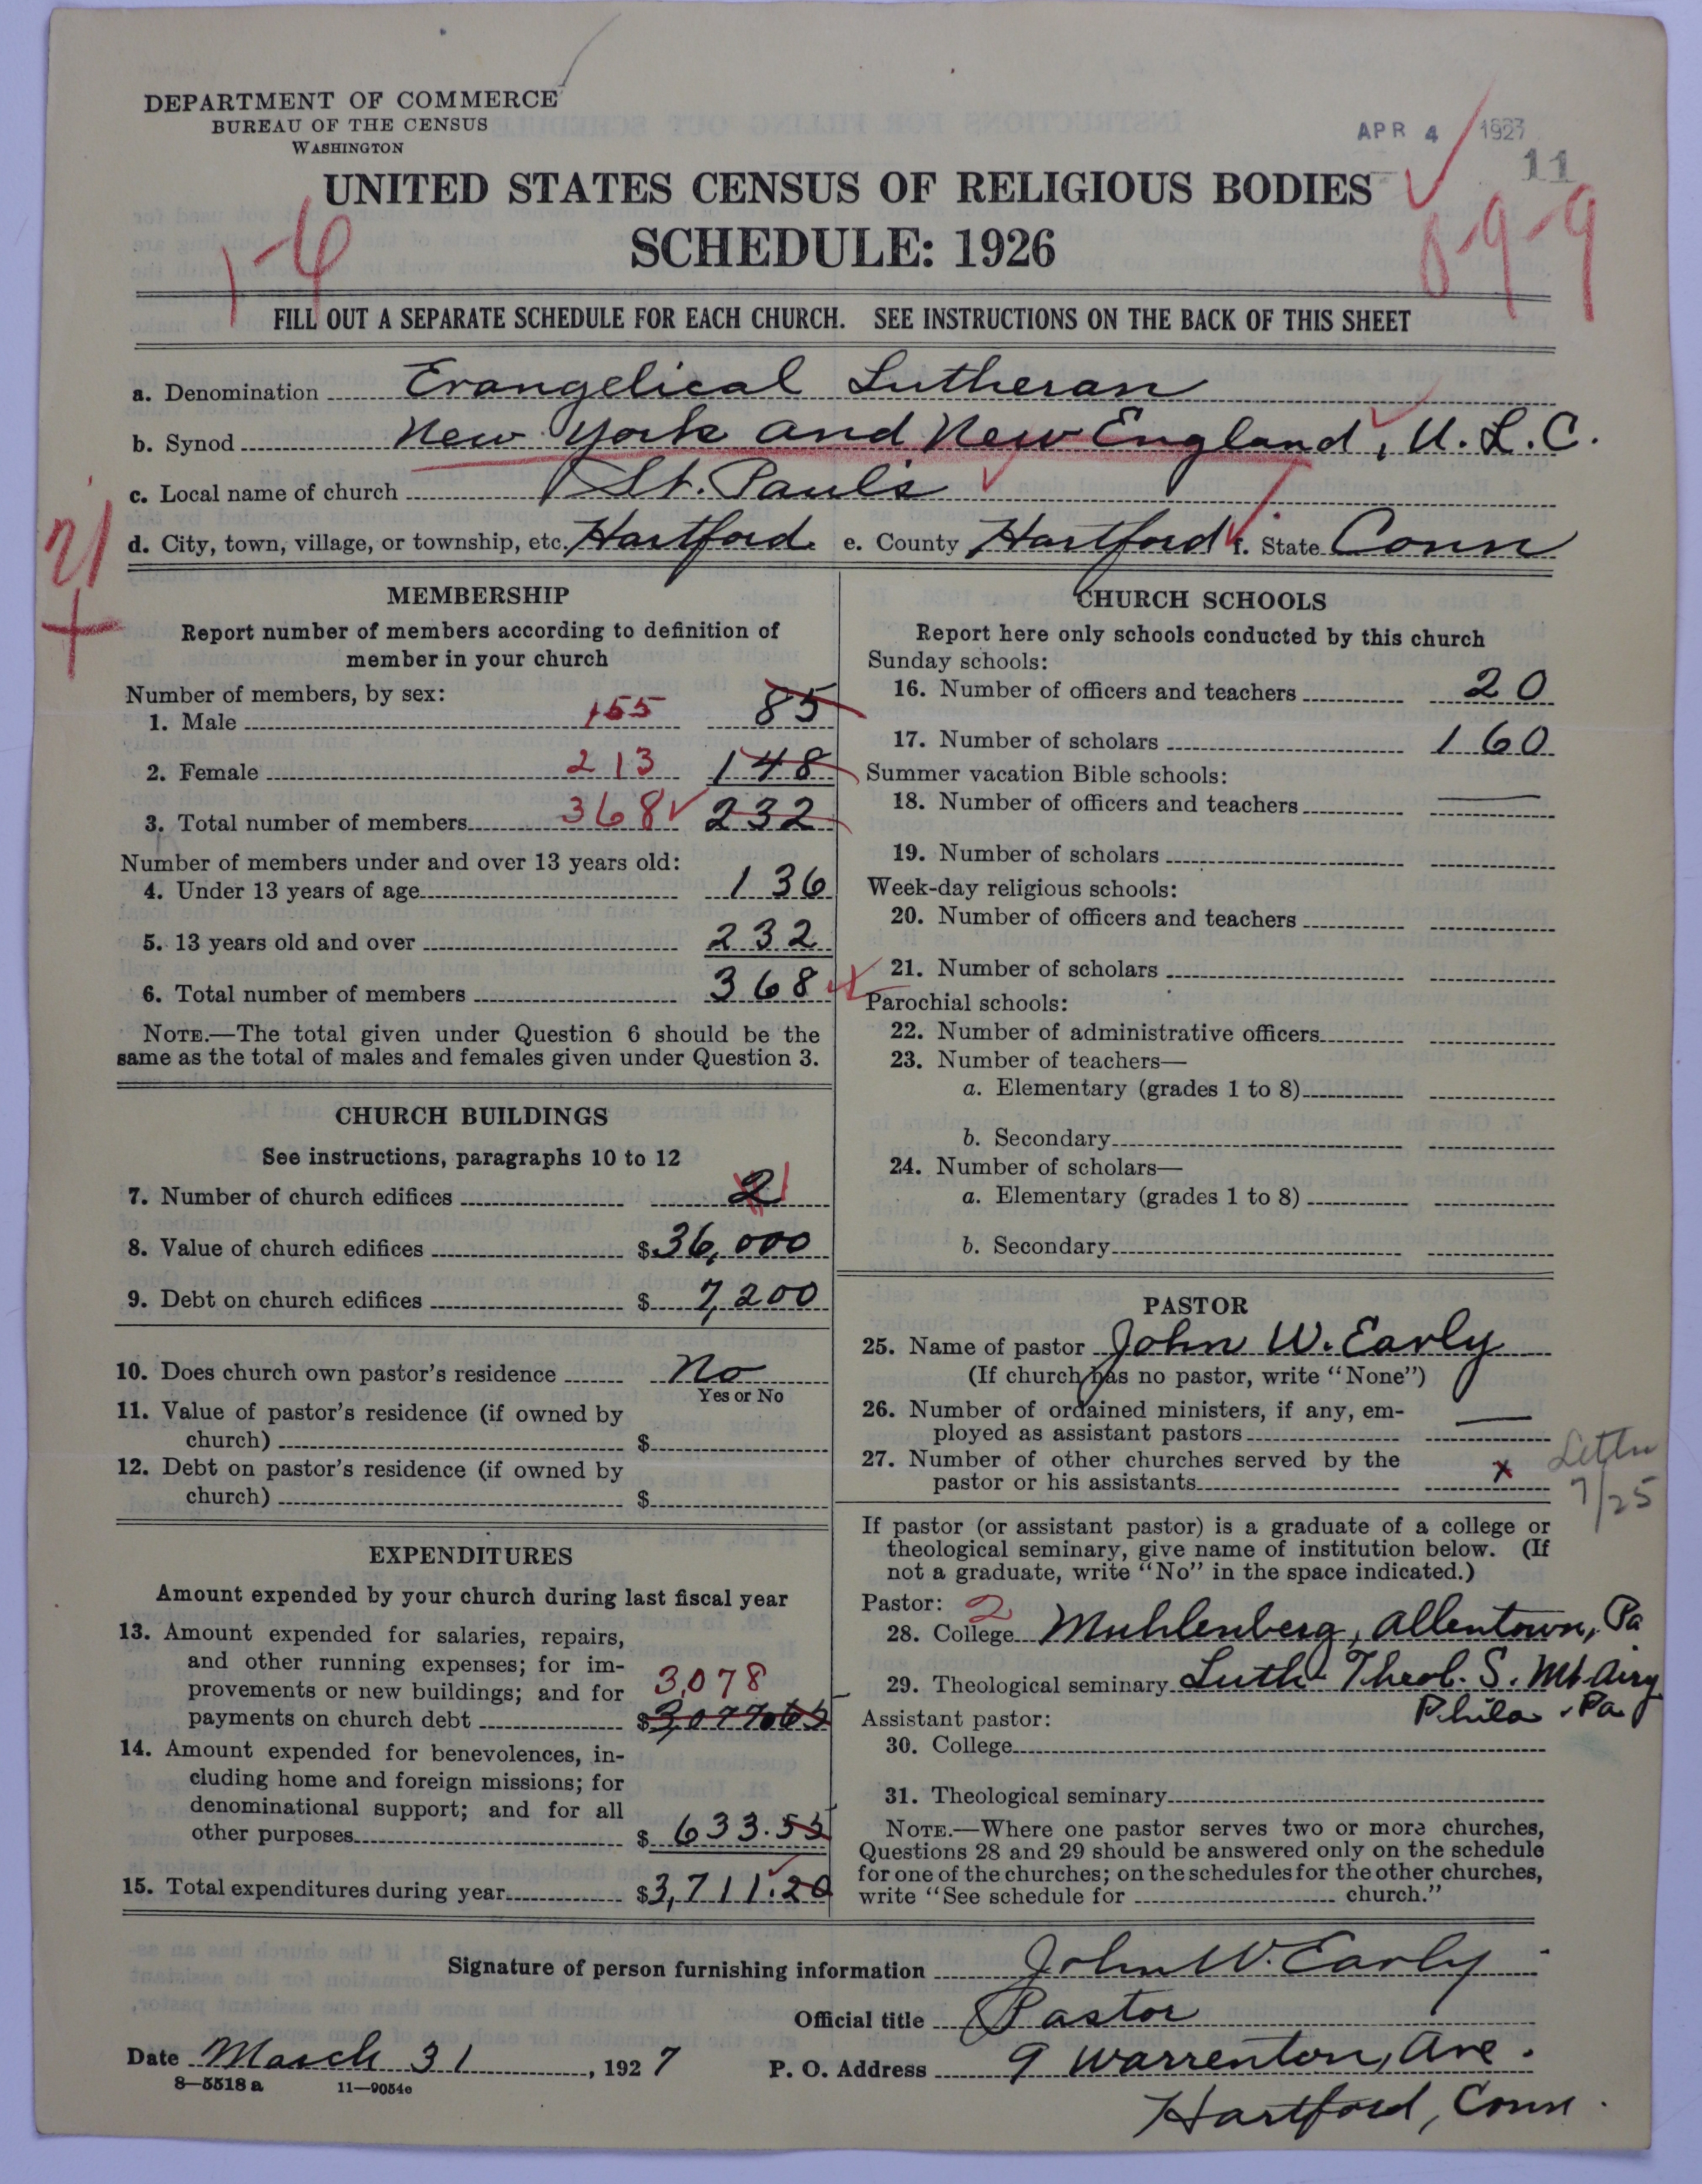 DEPARTMENT OF COMMERCE
BUREAU OF THE CENSUS
WASHINGTON
APR 4 1927
11
UNITED STATES CENSUS OF RELIGIOUS BODIES
SCHEDULE: 1926
1-6
8-9-9
FILL OUT A SEPARATE SCHEDULE FOR EACH CHURCH. SEE INSTRUCTIONS ON THE BACK OF THIS SHEET
a. Denomination Evangelical Lutheran
b. Synod New York and New England, U. L. C.
c. Local name of church St. Paul's
d. City, town, village, or township, etc. Hartford e. County Hartford f. State Conn
21
+
MEMBERSHIP
Report number of members according to definition of
member in your church
Number of members, by sex:
1. Male 155 85
2. Female 213 148
3. Total number of members 368 232
Number of members under and over 13 years old:
4. Under 13 years of age 136
5. 13 years old and over 232
6. Total number of members 368
NOTE.—The total given under Question 6 should be the
same as the total of males and females given under Question 3.
CHURCH BUILDINGS
See instructions, paragraphs 10 to 12
7. Number of church edifices 2 1
8. Value of church edifices $36,000
9. Debt on church edifices $ 7,200
10. Does church own pastor's residence No
Yes or No
11. Value of pastor's residence (if owned by
church) $
12. Debt on pastor's residence (if owned by
church) $
EXPENDITURES
Amount expended by your church during last fiscal year
13. Amount expended for salaries, repairs,
and other running expenses; for im-
provements or new buildings; and for 3,078
payments on church debt $3,077.65
14. Amount expended for benevolences, in-
cluding home and foreign missions; for
denominational support; and for all
other purposes $ 633.55
15. Total expenditures during year $3,711.20
CHURCH SCHOOLS
Report here only schools conducted by this church
Sunday schools:
16. Number of officers and teachers 20
17. Number of scholars 160
Summer vacation Bible schools:
18. Number of officers and teachers —
19. Number of scholars
Week-day religious schools:
20. Number of officers and teachers
21. Number of scholars
Parochial schools:
22. Number of administrative officers
23. Number of teachers—
a. Elementary (grades 1 to 8)
b. Secondary
24. Number of scholars—
a. Elementary (grades 1 to 8)
b. Secondary
PASTOR
25. Name of pastor John W. Early
(If church has no pastor, write "None")
26. Number of ordained ministers, if any, em-
ployed as assistant pastors —
27. Number of other churches served by the
pastor or his assistants x
Letter
7/25
If pastor (or assistant pastor) is a graduate of a college or
theological seminary, give name of institution below. (If
not a graduate, write "No" in the space indicated.)
Pastor: 2
28. College Muhlenberg, Allentown, Pa
29. Theological seminary Luth. Theol. S. Mt Airy
Assistant pastor: Phila. Pa
30. College
31. Theological seminary
NOTE.—Where one pastor serves two or more churches,
Questions 28 and 29 should be answered only on the schedule
for one of the churches; on the schedules for the other churches,
write "See schedule for church."
Signature of person furnishing information John W. Early
Official title Pastor
Date March 31, 1927 P. O. Address 9 Warrenton, Ave.
8—5518 a 11—9054e
Hartford, Conn.